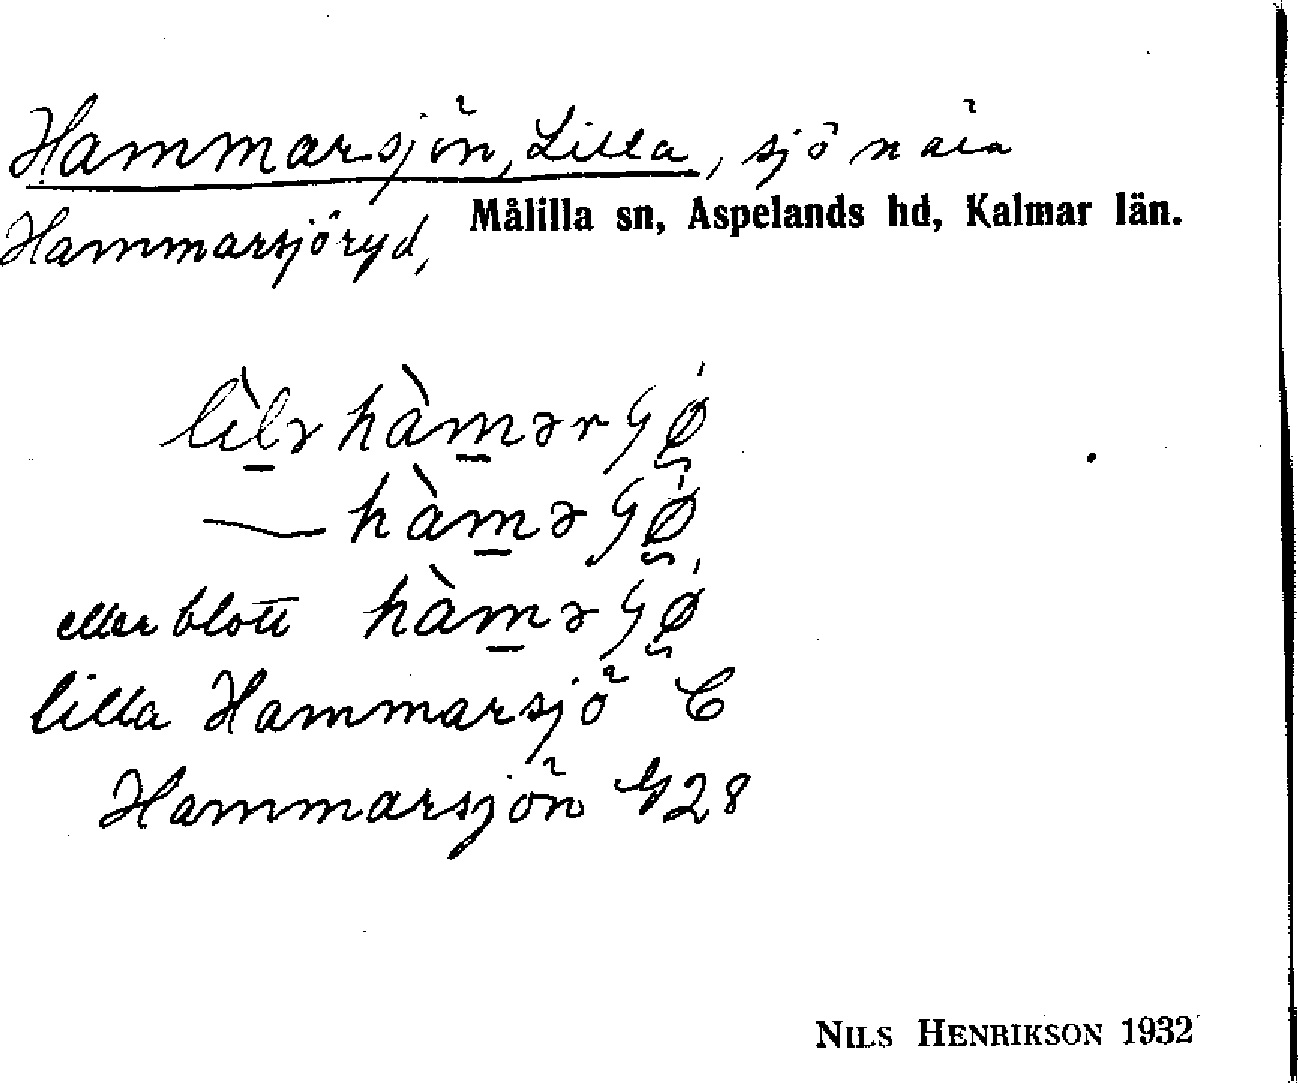 Hammarsjön, Lilla, sjö nära
Hammarsjöryd, Målilla sn, Aspelands hd, Kalmar län.
lìlə hàmər
— hàmə
eller blott hàmə
lilla Hammarsjö C
Hammarsjön 28
NILS HENRIKSON 1932